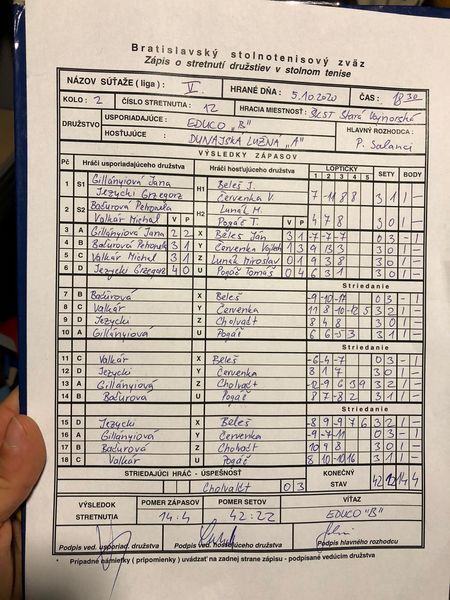 Bratislavský stolnotenisový zväz
Zápis o stretnutí družstiev v stolnom tenise
NÁZOV SÚŤAŽE ( liga ) : V. HRANÉ DŇA : 5.10.2020 ČAS : 18.30
KOLO : 2 ČÍSLO STRETNUTIA : 12 HRACIA MIESTNOSŤ : ŠKST Stará Vajnorská
DRUŽSTVO USPORIADAJÚCE : EDUCO "B" HLAVNÝ ROZHODCA :
HOSŤUJÚCE : DUNAJSKÁ LUŽNÁ "A" P. Salanci
VÝSLEDKY ZÁPASOV
Pč Hráči usporiadajúceho družstva Hráči hosťujúceho družstva LOPTIČKY SETY BODY
1 2 3 4 5
1 S1 Gillányiová Jana H1 Beleš J.
Jezycki Grzegorz Červenka V. 7 -11 8 8 3 1 1 -
2 S2 Baďurová Petronela H2 Lunáš M.
Valkár Michal V P Pogáš T. V P 4 7 8 3 0 1 -
3 A Gillányiová Jana 2 2 X Beleš Ján 3 1 -7 -7 -7 0 3 - 1
4 B Baďurová Petronela 3 1 Y Červenka Vojtech 1 3 9 13 3 3 0 1 -
5 C Valkár Michal 3 1 Z Lunáš Miroslav 0 1 9 3 8 3 0 1 -
6 D Jezycki Grzegorz 4 0 U Pogáš Tomáš 0 4 6 3 1 3 0 1 -
Striedanie
7 B Baďurová X Beleš -9 -10 -17 0 3 - 1
8 C Valkár Y Červenka 11 8 -10 -12 5 3 2 1 -
9 D Jezycki Z Cholvadt 8 4 8 3 0 1 -
10 A Gillányiová U Pogáš 6 6 -5 3 3 1 1 -
Striedanie
11 C Valkár X Beleš -6 -4 -7 0 3 - 1
12 D Jezycki Y Červenka 8 1 7 3 0 1 -
13 A Gillányiová Z Cholvadt -12 -9 6 3 9 3 2 1 -
14 B Baďurová U Pogáš 8 7 -8 2 3 1 1 -
Striedanie
15 D Jezycki X Beleš -8 9 -9 7 6 3 2 1 -
16 A Gillányiová Y Červenka -9 -7 -11 0 3 - 1
17 B Baďurová Z Cholvadt 10 9 8 3 0 1 -
18 C Valkár U Pogáš 8 10 -10 16 3 1 1 -
STRIEDAJÚCI HRÁČ - ÚSPEŠNOSŤ KONEČNÝ
Cholvadt 0 3 STAV 42 22 14 4
VÝSLEDOK POMER ZÁPASOV POMER SETOV VÍŤAZ
STRETNUTIA 14:4 42:22 EDUCO "B"
Podpis ved. usporiad. družstva Podpis ved. hosťujúceho družstva Podpis hlavného rozhodcu
* Prípadné námietky ( pripomienky ) uvádzať na zadnej strane zápisu - podpísané vedúcim družstva